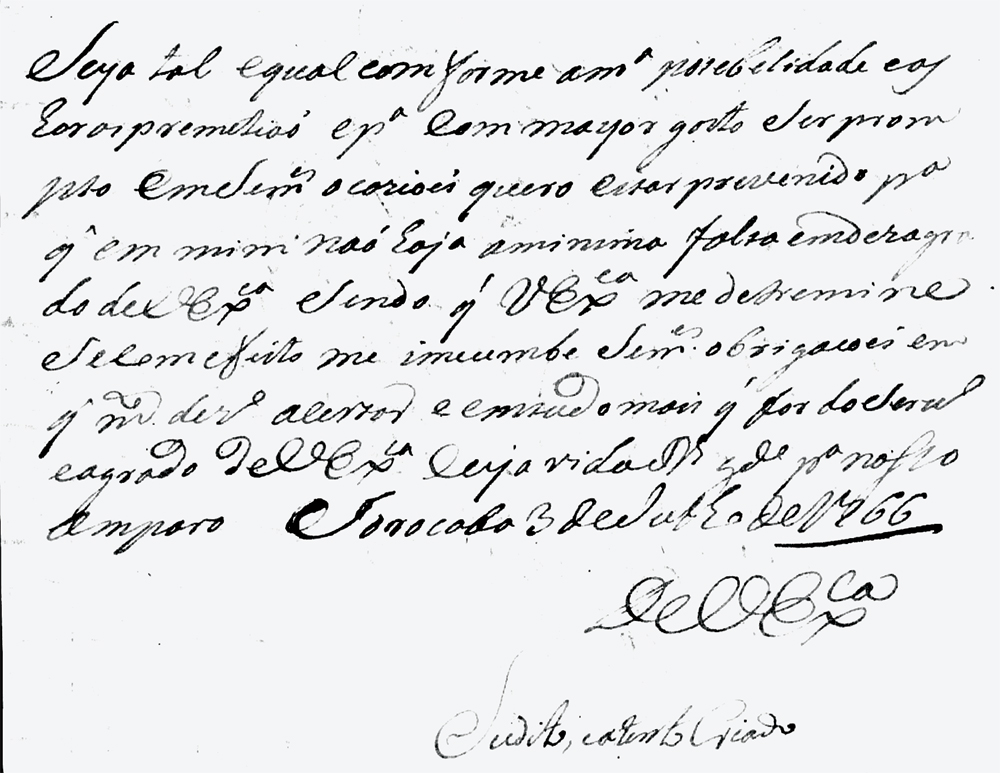 Seya tal equal comforme am.ª posebelidade e as
horas premetiaõ e p.ª com mayor gosto ser prom
pto em sem.es ocazioẽs quero estar prevenido p.ª
q̃ em mim naõ haja a minima falta em dezagra
do de V Ex.ca sendo q̃ V Ex.ca me detremine
se com efeito me imcumbe sem.es obrigacoẽs em
q̃ m.to dez.o acertar e em tudo mais q̃ for do
e agrado de V Ex.ca cuja vida D.s g.de p.ª nosso
Amparo Sorocaba 3 de Julho de 1766
De V Ex.ca
Subdito, e atento Criado